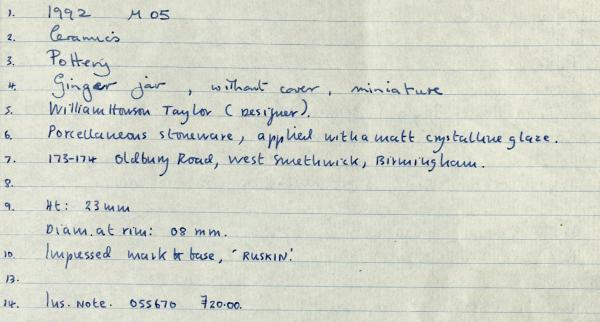 1. 1992 M 05
2. Ceramics
3. Pottery
4. Ginger jar, without cover, miniature
5. William Howson Taylor (Designer).
6. Porcellaneous stoneware, applied with a matt crystalline glaze.
7. 173-174 Oldbury Road, West Smethwick, Birmingham.
8.
9. Ht: 23 mm
Diam. at rim: 08 mm.
10. Impressed mark to base, 'RUSKIN'.
13.
14. Ins. Note. 055670 720.00.